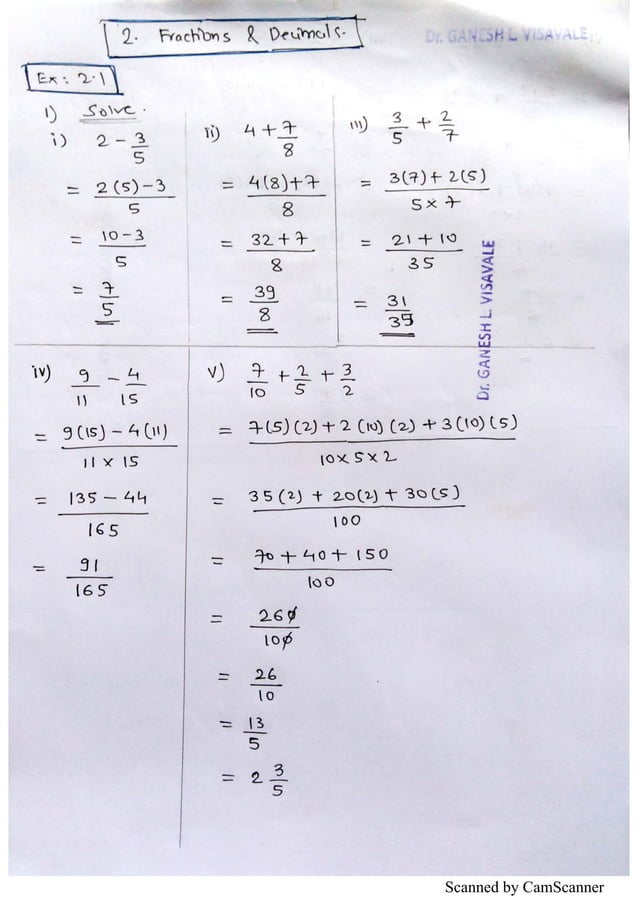 2. Fractions & Decimals.
Dr. GANESH L VISAVALE
Ex: 2.1
1) Solve.
i) 2 - 3/5
= 2(5)-3/5
= 10-3/5
= 7/5
ii) 4 + 7/8
= 4(8)+7/8
= 32+7/8
= 39/8
iii) 3/5 + 2/7
= 3(7)+2(5)/5×7
= 21+10/35
= 31/35
Dr. GANESH L. VISAVALE
iv) 9/11 - 4/15
= 9(15)-4(11)/11×15
= 135-44/165
= 91/165
v) 7/10 + 2/5 + 3/2
= 7(5)(2)+2(10)(2)+3(10)(5)/10×5×2
= 35(2)+20(2)+30(5)/100
= 70+40+150/100
= 260/100
= 26/10
= 13/5
= 2 3/5
Scanned by CamScanner